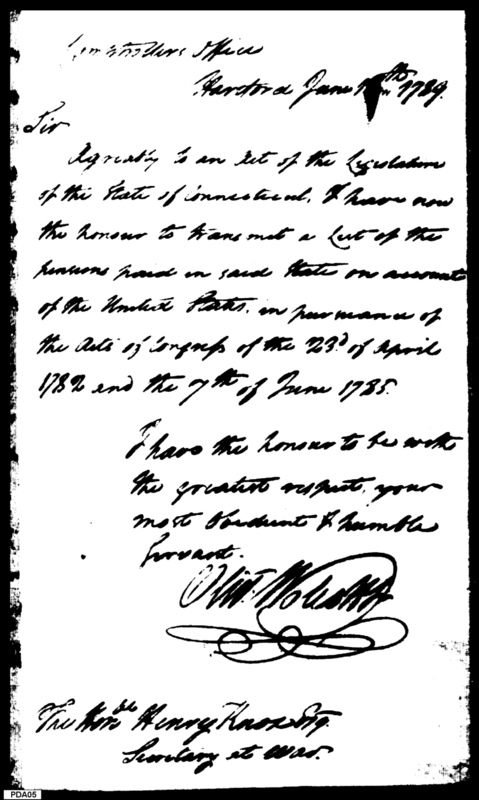 Comptrollers Office
Hartford June 1789.
Sir
Agreably to an Act of the Legislature
of the State of Connecticut, I have now
the honour to transmet a List of the
pensions paid in said State on account
of the United States, in pursuance of
the Acts of Congress of the 23.d of April
1782 and the 7th of June 1785.
I have the honour to be with
the greatest respect, your
most Obedient & humble
Servant.
Olivr. Wolcott Jr
The Honble Henry Knox Esq.
Secretary at War.
PDA05